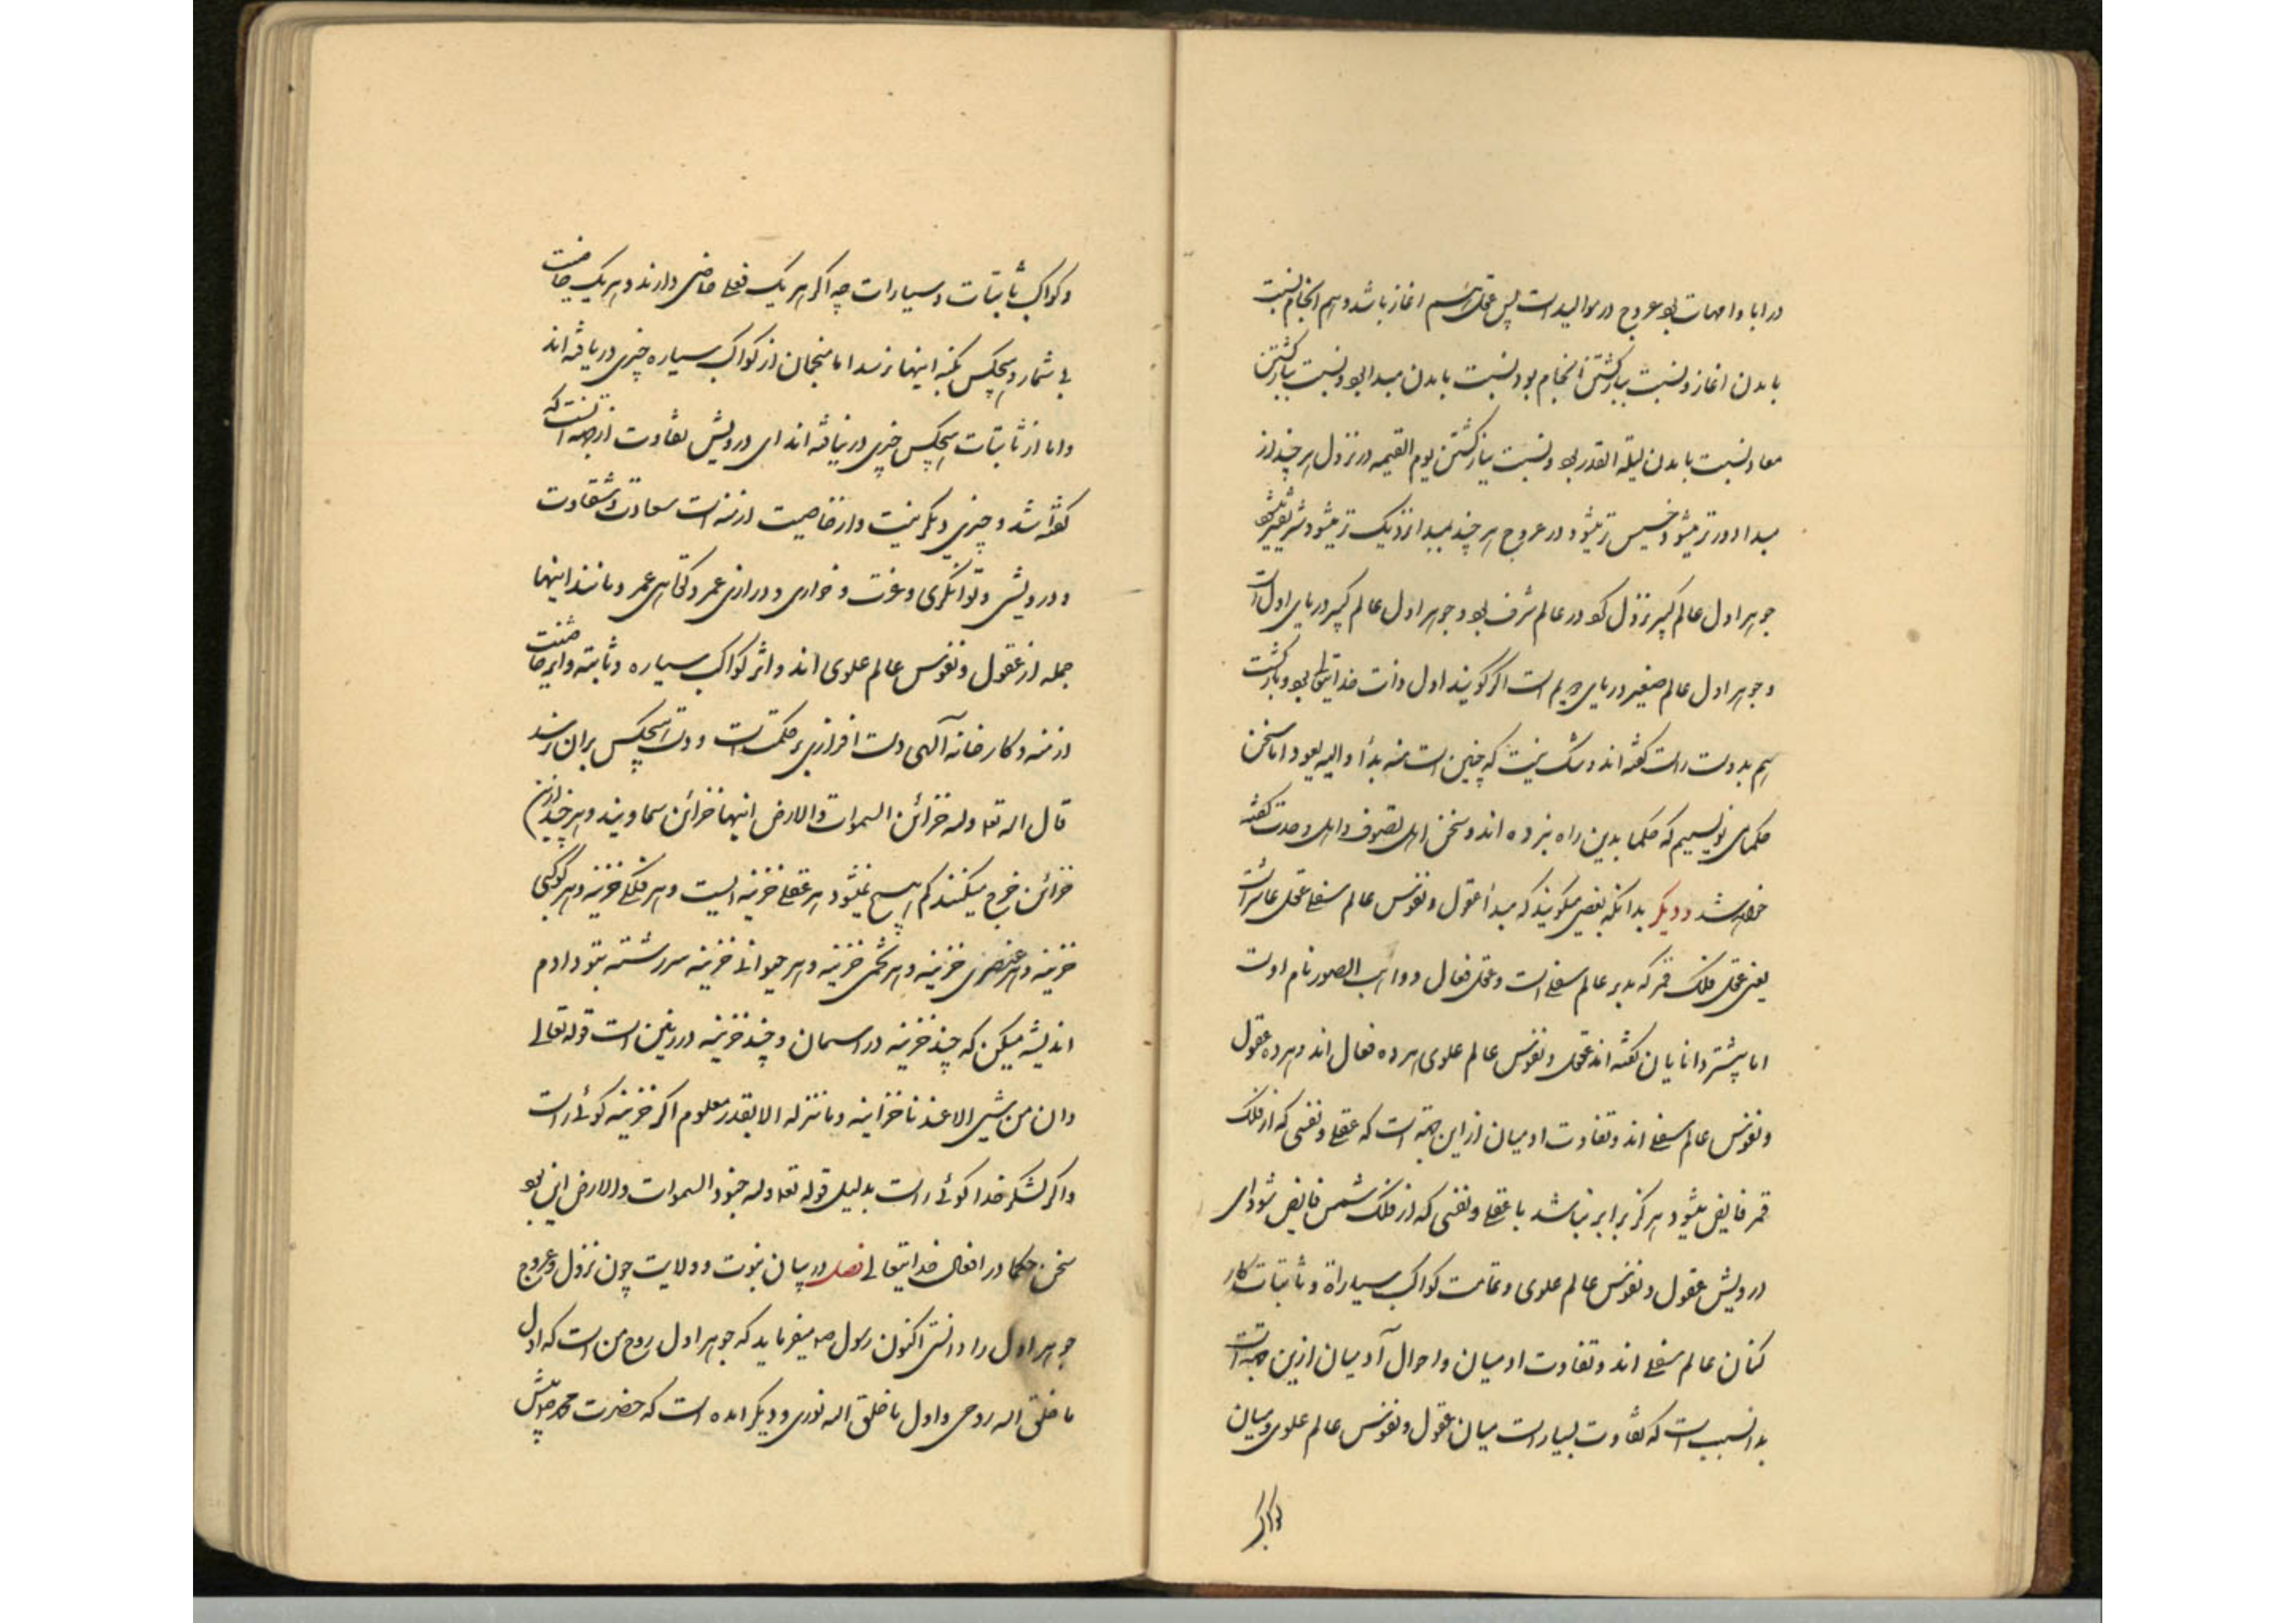 در ابا و امهات بود عروج در موالید است پس عقل هم اغاز باشد و هم انجام نسبت
بامدن اغاز و نسبت ببازکشتن انجام بود نسبت بامدن مبدا بود و نسبت ببازکشتن
معاد نسبت بامدن لیلة القدر بود و نسبت ببازکشتن یوم القیمه در نزول هر چند از
مبدا دورتر میشود خسیس تر میشود و در عروج هر چند بمبدا نزدیک تر میشود شریفتر میشود
جوهر اول عالم کبیر نزول کو در عالم شرف بود و جوهر اول عالم کبیر دریای اول است
و جوهر اول عالم صغیر دریای دویم است اکر کویند اول ذات خدایتعالی بود و بازکشت
هم بدوست راست کفته اند و شک نیست که چنین است منه بدأ و الیه یعود اما سخن
حکمای نویسیم که حکما بدین راه نبرده اند و سخن اهل تصوف و اهل وحدت کفته
خواهد شد و دیکر بدانکه بعضی میکویند که مبدأ عقول و نفوس عالم سفلی عقل عاشر است
یعنی عقل فلک قمر که مدبر عالم سفلی است و عقل فعال و واهب الصور نام اوست
اما پیشتر دانایان کفته اند عقول و نفوس عالم علوی هر ده فعال اند و هر ده عقول
و نفوس عالم سفلی اند و تفاوت ادمیان از این جهة است که عقلی و نفسی که از فلک
قمر فایض میشود هرکز برابر نباشد با عقلی و نفسی که از فلک شمس فایض شود ای
درویش عقول و نفوس عالم علوی و تمامت کواکب سیاراة و ثابتات کار
کنان عالم سفلی اند و تفاوت ادمیان و احوال آدمیان ازین جهة است
بدانسبب است که تفاوت بسیار است میان عقول و نفوس عالم علوی و میان
و کواکب ثابتات و سیارات چه اکر هر یک فعلی خاصی دارند و هر یک خاصیت
بی شمار و هیچکس بکنه اینها نرسد اما منجمان از کواکب سیاره چیزی دریافته اند
و اما از ثابتات هیچکس چیزی درنیافته اند ای درویش تفاوت ازجهة انست که
کفته شد و چیزی دیکر نیست و از خاصیت ازمنه است سعادت و شقاوت
و درویشی و توانکری و عزت و خواری و درازی عمر و کوتاهی عمر و مانند اینها
جمله از عقول و نفوس عالم علوی اند و اثر کواکب سیاره و ثابته و این خاصیت
ازمنه و کارخانه آلهی دست افرازی پر حکمت است و هیچکس بران نرسد
قال اله تع و له خزائن السموات و الارض اینها خزائن سماویند و هر چند ازین
خزائن خرج میکنند کم هیچ نمیشود هر عقلی خزینه ایست و هر فلکی خزینه و هر کوکبی
خزینه و هر عنصری خزینه و هر تخمی خزینه و هر حیوانی خزینه سررشته بتو دادم
اندیشه میکن که چند خزینه در اسمان و چند خزینه در زمین است قوله تعالی
وان من شیی الا عندنا خزاینه و ماننزله الا بقدر معلوم اکر خزینه کوئی راست
و اکر لشکر خدا کوئی راست بدلیل قوله تع و له جنود السموات و الارض این بود
سخن حکما در افعال خدایتعالی فصل در بیان نبوت و ولایت چون نزول و عروج
جوهر اول را دانستی اکنون رسول ص میفرماید که جوهر اول روح من است که اول
ما خلق اله روحی و اول ما خلق اله نوری و دیکر امده است که حضرت محمد ص پیش